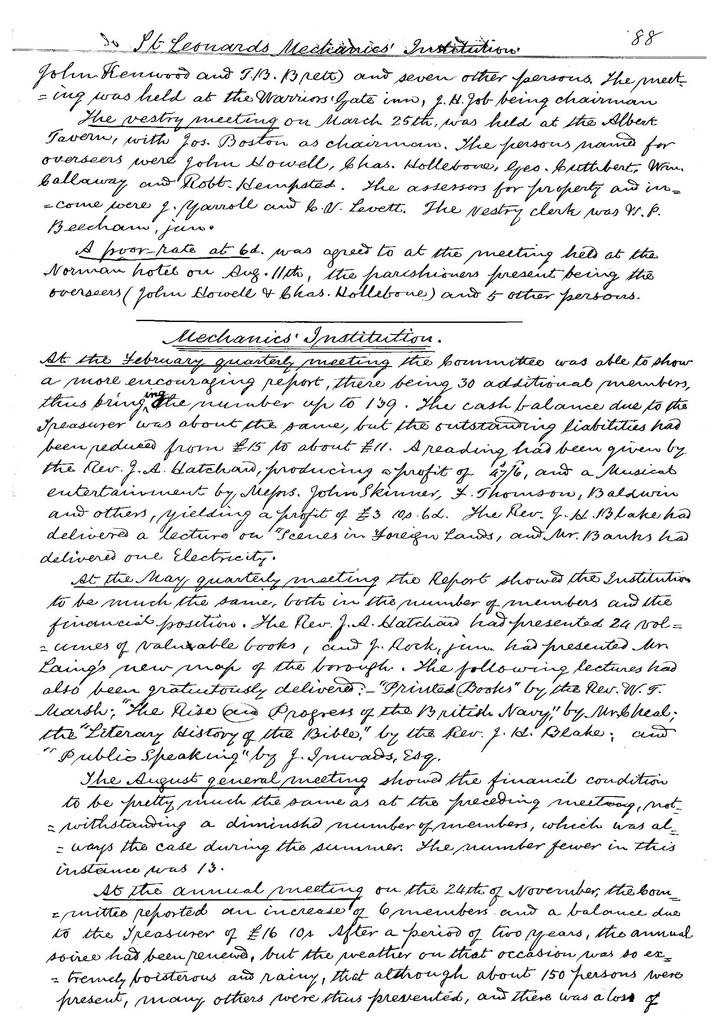 To St Leonards Mechanics' Institution. 88
John Kenwood and T.B. Brett) and seven other persons. The meet-
=ing was held at the Warriors' Gate inn, J.H. Job being chairman
The vestry meeting on March 25th, was held at the Albert
Tavern, with Jos. Boston as chairman. The persons named for
overseers were John Howell, Chas. Hollebone, Geo. Cuthbert, Wm.
Callaway and Robt. Hempsted. The assessors for property and in=
=come were J. Yarroll and C.V. Levett. The vestry clerk was W.P.
Beecham, jun.
A poor-rate at 6d. was agreed to at the meeting held at the
Norman hotel on Aug. 11th, the parishioners present being the
overseers (John Howell & Chas. Hollebone) and 5 other persons.
Mechanics' Institution.
At the February quarterly meeting the Committee was able to show
a more encouraging report, there being 30 additional members,
thus bringing the number up to 139. The cash balance due to the
Treasurer was about the same, but the outstanding liabilities had
been reduced from £15 to about £11. A reading had been given by
the Rev. J.A. Hatchard, producing a profit of 47/6, and a Musical
entertainment by Messrs. John Skinner, F. Thomson, Baldwin
and others, yielding a profit of £3 10s. 6d. The Rev. J.H. Blake had
delivered a lecture on "Scenes in Foreign Lands, and Mr. Banks had
delivered one Electricity.
At the May quarterly meeting the Report showed the Institution
to be much the same, both in the number of members and the
financial position. The Rev. J.A. Hatchard had presented 24 vol=
=umes of valuable books, and J. Rock, jun. had presented Mr.
Laing's new map of the borough. The following lectures had
also been gratuitously delivered:- "Printed Books" by the Rev. W.T.
Marsh; "The Rise and Progress of the British Navy," by Mr. Cheal;
the "Literary History of the Bible," by the Rev. J.H. Blake; and
"Public Speaking" by J. Inwads, Esq.
The August general meeting showed the financil condition
to be pretty much the same as at the preceding meeting, not=
=withstanding a diminshd number of members, which was al=
=ways the case during the summer. The number fewer in this
instance was 13.
At the annual meeting on the 24th of November, the Com=
=mittee reported an increase of 6 members and a balance due
to the Treasurer of £16 10s. After a period of two years, the annual
soiree had been renewed, but the weather on that occasion was so ex=
=tremely boisterous and rainy, that although about 150 persons were
present, many others were thus prevented, and there was a loss of